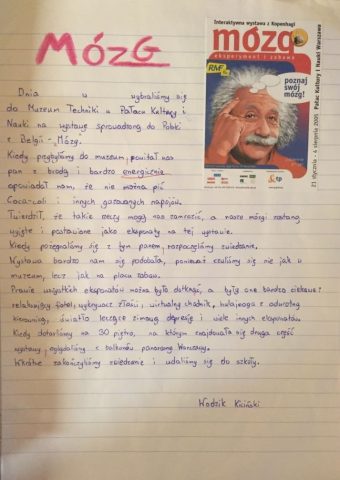 MÓZG
Interaktywna wystawa z Kopenhagi
mózg
eksperyment i zabawa
RMF FM
poznaj swój mózg!
tp
21 stycznia - 4 sierpnia 2005 Pałac Kultury i Nauki Warszawa
Dnia w wybraliśmy się
do Muzeum Techniki w Pałacu Kultury i
Nauki na wystawę sprowadzoną do Polski
z Belgii - „Mózg.
Kiedy przybyliśmy do muzeum, powitał nas
pan z brodą i bardzo energicznie
opowiadał nam, że nie można pić
Coca-coli i innych gazowanych napojów.
Twierdził, że takie rzeczy mogą nas zamrozić, a nasze mózgi zostaną
wyjęte i postawione jako eksponaty na tej wystawie.
Kiedy pożegnaliśmy się z tym panem, rozpoczęliśmy zwiedzanie.
Wystawa bardzo nam się podobała, ponieważ czuliśmy się nie jak w
muzeum, lecz jak na placu zabaw.
Prawie wszystkich eksponatów można było dotknąć, a były one bardzo ciekawe:
relaksujący fotel, wykrywacz złości, wirtualny chodnik, hulajnoga z odwrotną
kierownicą, światło leczące zimową depresję i wiele innych eksponatów.
Kiedy dotarliśmy na 30 piętro, na którym znajdowała się druga część
wystawy, oglądaliśmy z balkonów panoramę Warszawy.
Wkrótce zakończyliśmy zwiedzanie i udaliśmy się do szkoły.
Wodzik Kiciński